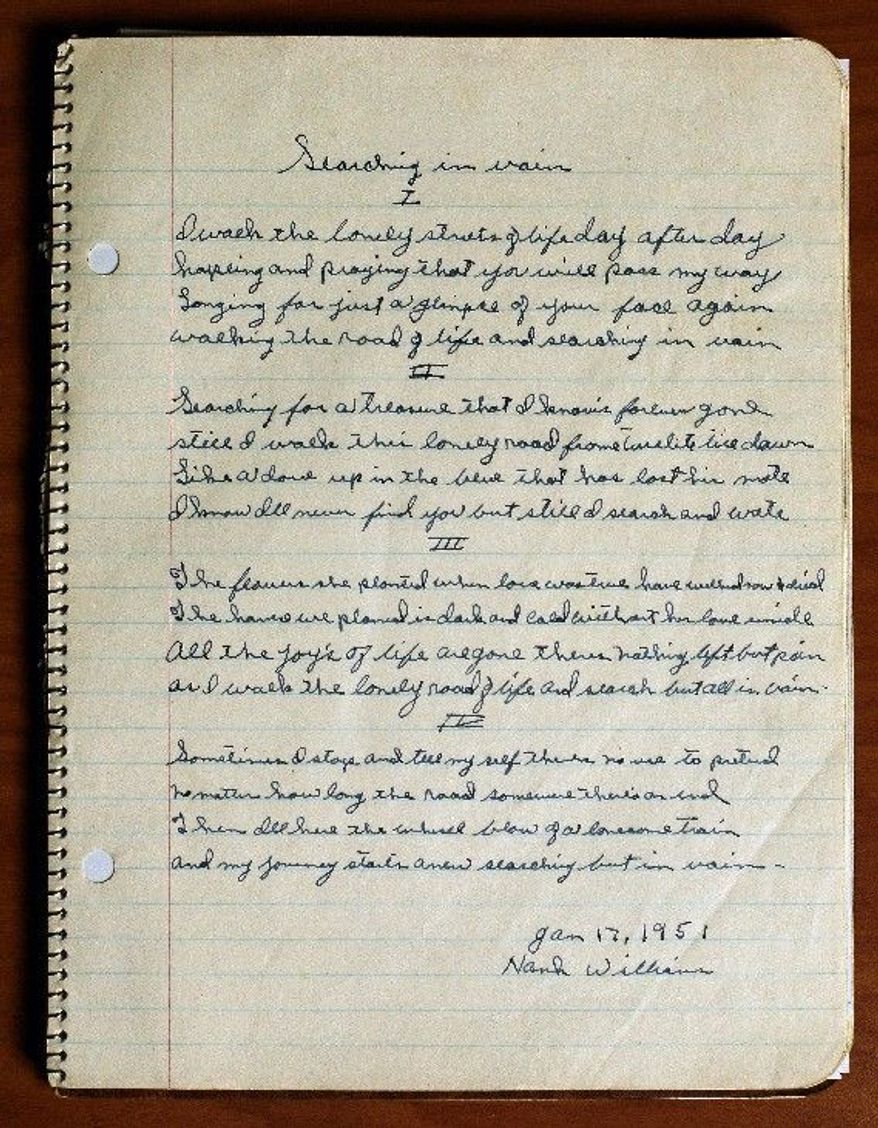 Searching in vain
I
I walk the lonely streets of life day after day
hopeing and praying that you will pass my way
Longing for just a glimpse of your face again
walking the road of life and searching in vain
II
Searching for a treasure that I know is forever gone
still I walk this lonely road from till dawn
Like a dove up in the blue that has lost his mate
I know Ill never find you but still I search and wate
III
The flowers she planted when love was true have & died
The home we planed is dark and cold without her love inside
All the joy's of life are gone theres nothing left but pain
as I walk the lonely road of life and search but all in vain.
IV
Sometimes I stop and tell my self theres no use to pretend
no matter how long the road somewere there's an end
Then Ill here the whisel blow of a lonesome train
and my journey starts anew searching but in vain -
Jan 17, 1951
Hank Williams